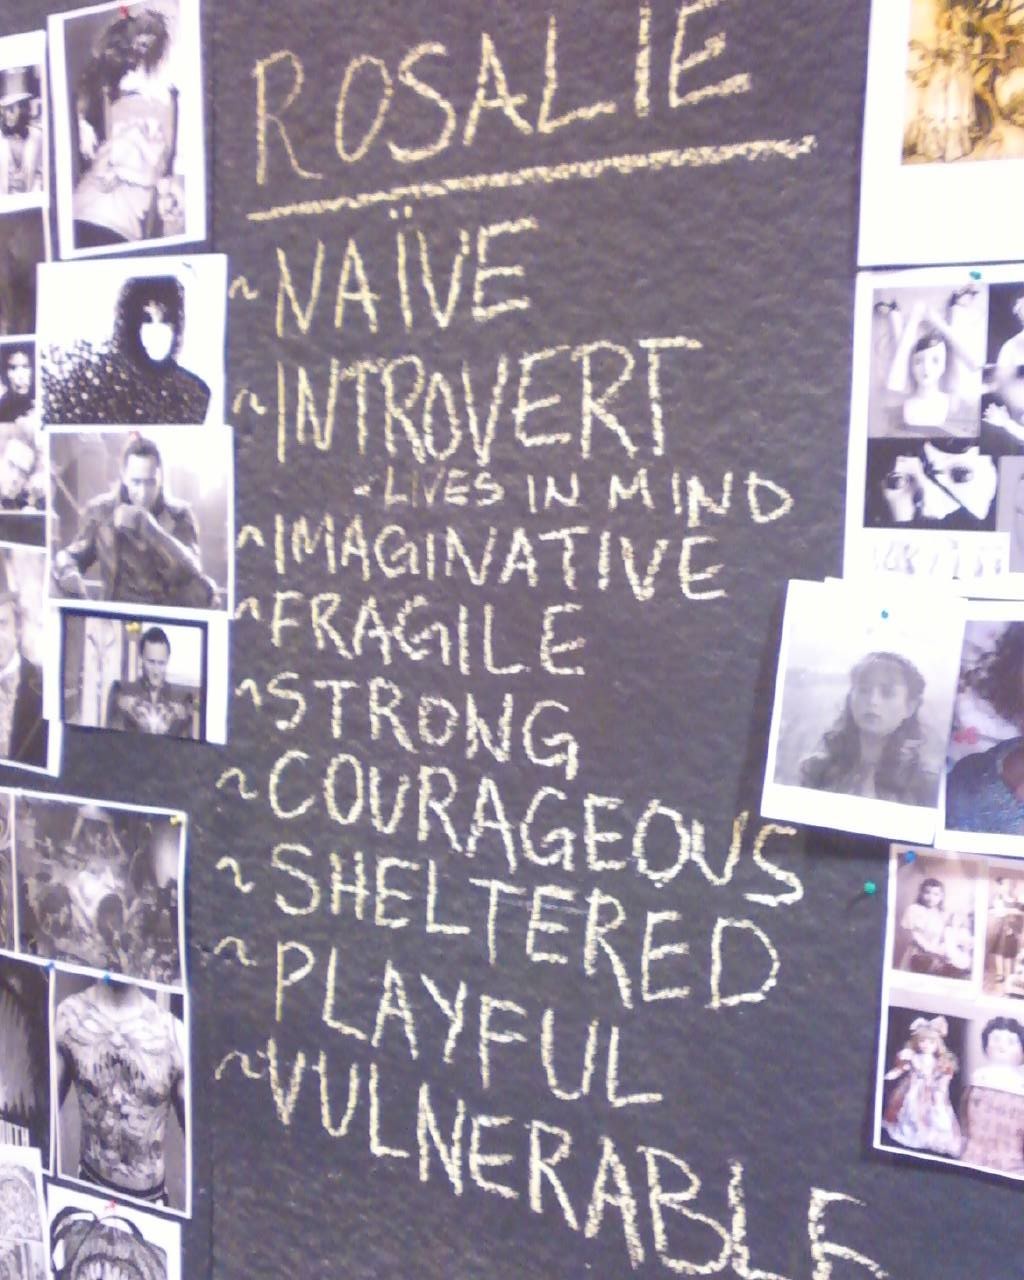 ROSALIE
~NAÏVE
~INTROVERT
-LIVES IN MIND
~IMAGINATIVE
~FRAGILE
~STRONG
~COURAGEOUS
~SHELTERED
~PLAYFUL
~VULNERABLE